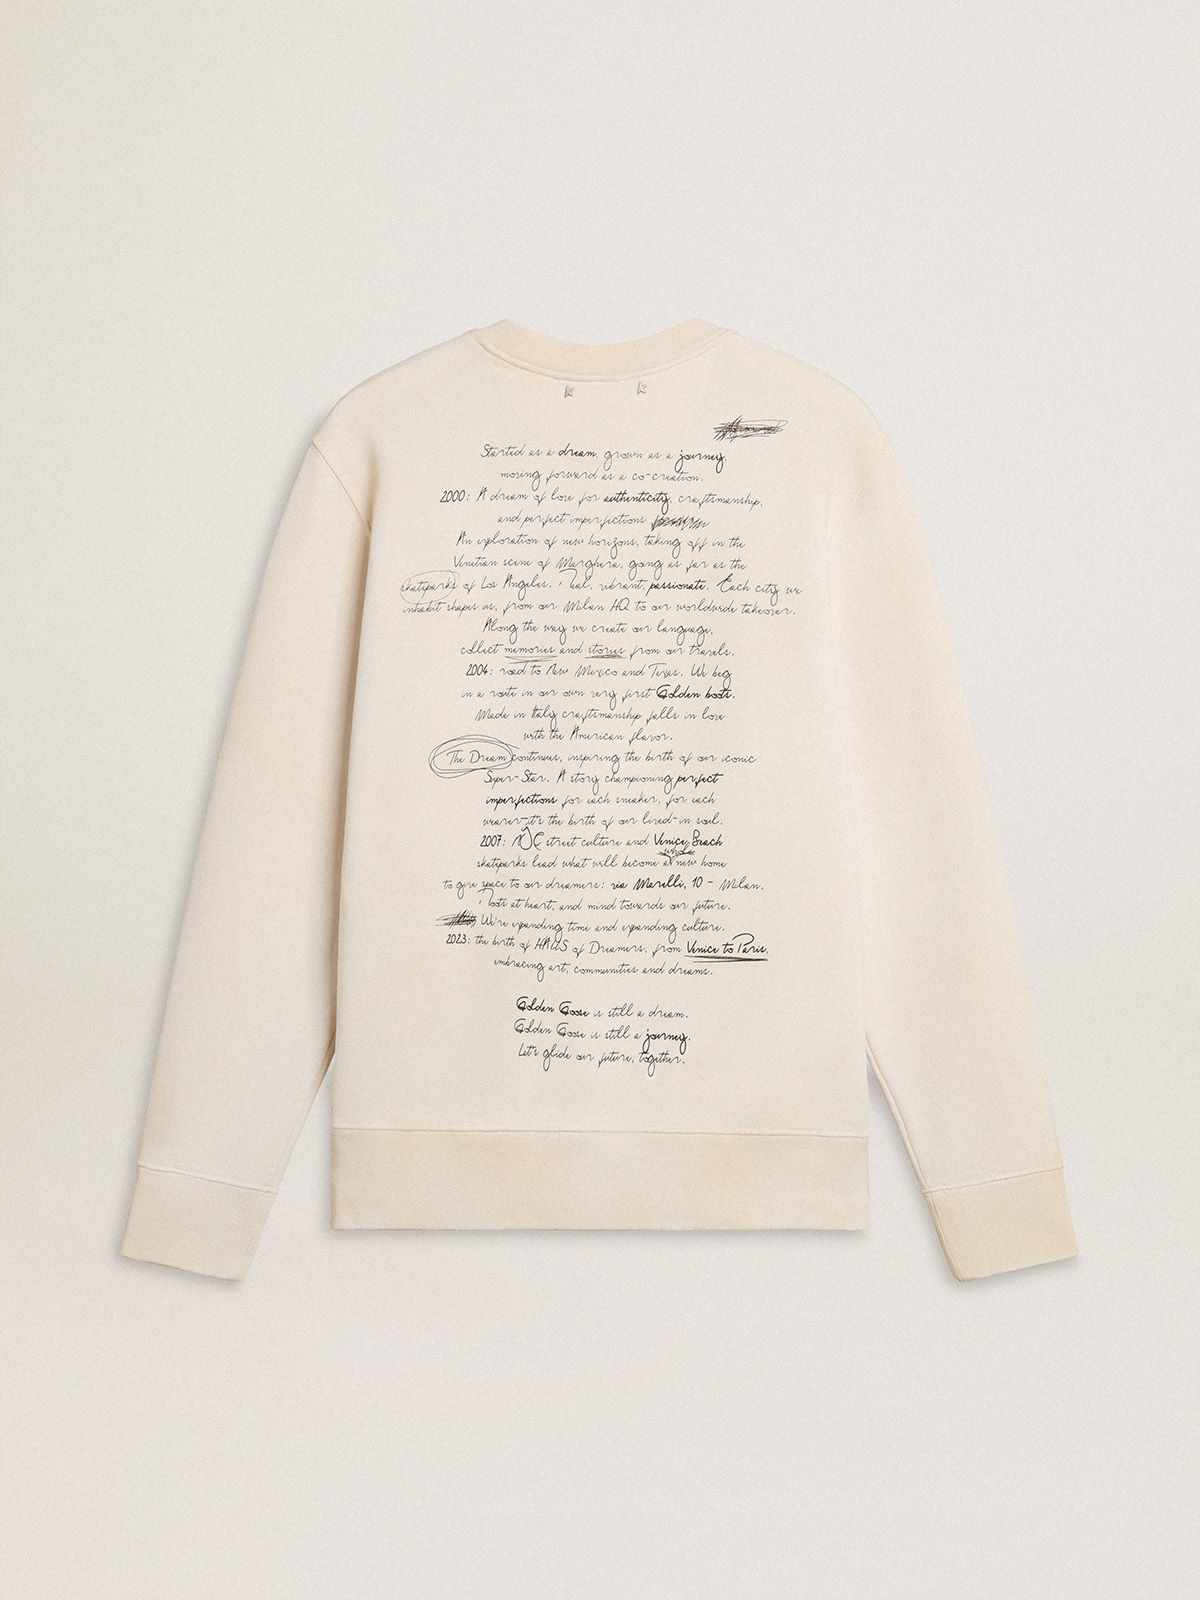 Started as a dream, grown as a journey,
moving forward as a co-creation.
2000: A dream of love for authenticity, craftsmanship,
and perfect imperfections
An exploration of new horizons, taking off in the
Venetian scene of Marghera, going as far as the
skateparks of Los Angeles. Real, vibrant, passionate. Each city we
inhabit shapes us, from our Milan HQ to our worldwide takeover.
Along the way we create our language,
collect memories and stories from our travels.
2004: road to New Mexico and Texas. We beg
in a route in our own very first Golden boots.
Made in Italy craftsmanship falls in love
with the American flavor.
The Dream continues, inspiring the birth of our iconic
Super-Star. A story championing perfect
imperfections for each sneaker, for each
wearer-it's the birth of our lived-in soul.
2007: NYC street culture and Venice Beach
whole
skateparks lead what will become a new home
to give space to our dreamers: via Morelli, 10 - Milan.
Roots at heart, and mind towards our future.
We're expanding time and expanding culture.
2023: the birth of HAUS of Dreamers, from Venice to Paris,
embracing art, communities and dreams.
Golden Goose is still a dream.
Golden Goose is still a journey.
Let's glide our future, together.